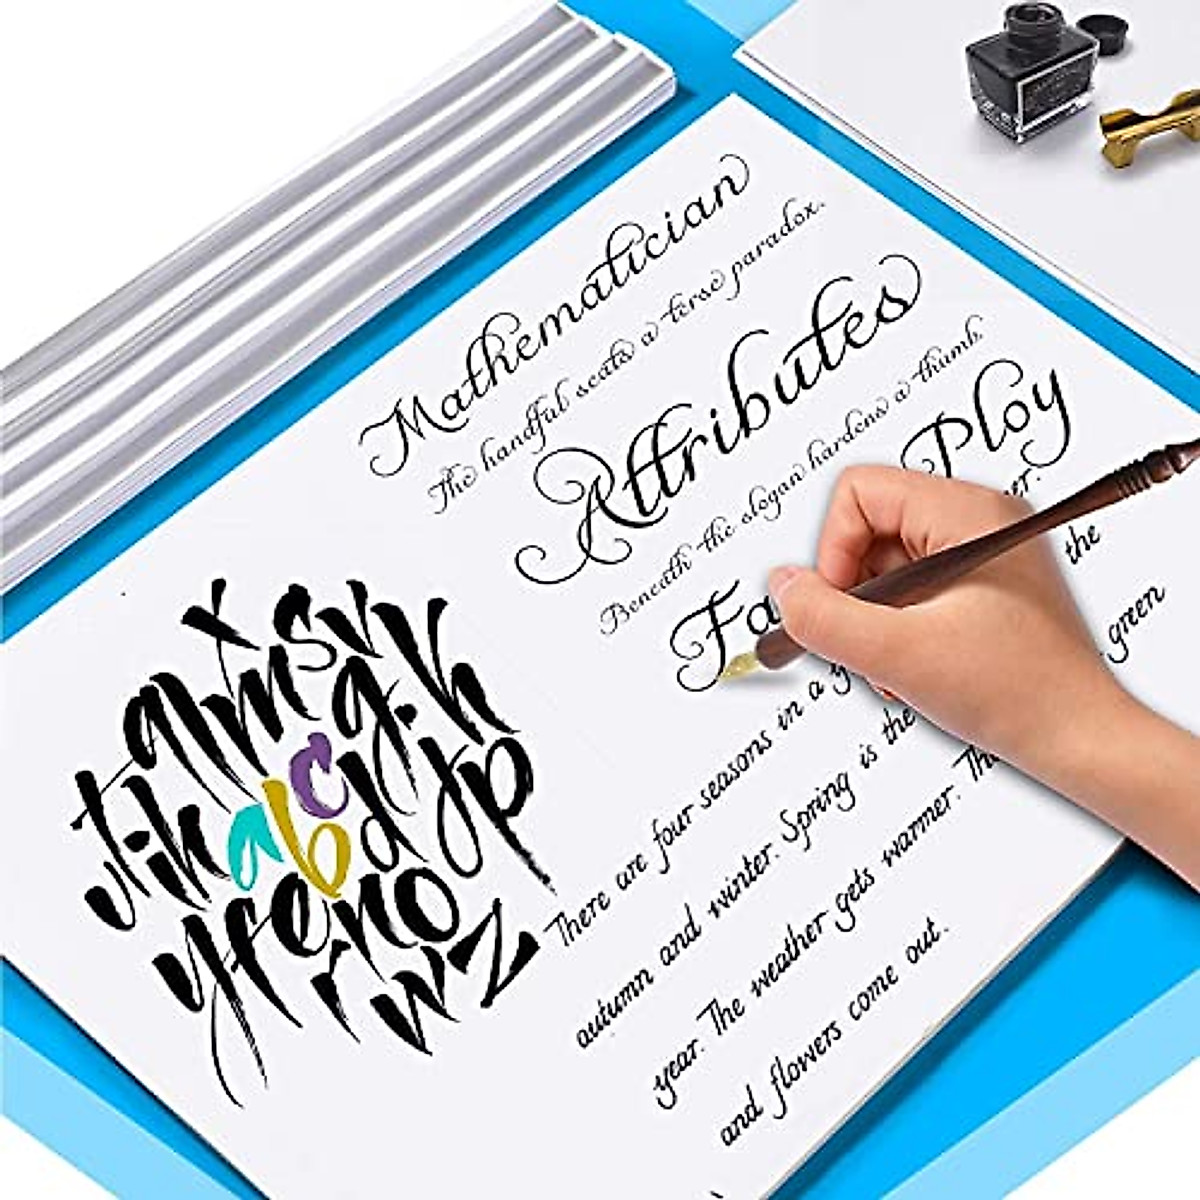 Mathematician
The handful seats a terse paradox.
Attributes
Beneath the slogan hardens a thumb.
Ploy
Fa
er.
There are four seasons in a the
autumn and winter. Spring is the green
year. The weather gets warmer. The
and flowers come out.
x s v
a l m g . k
t i k a b c d j p
y f e n o
r w z